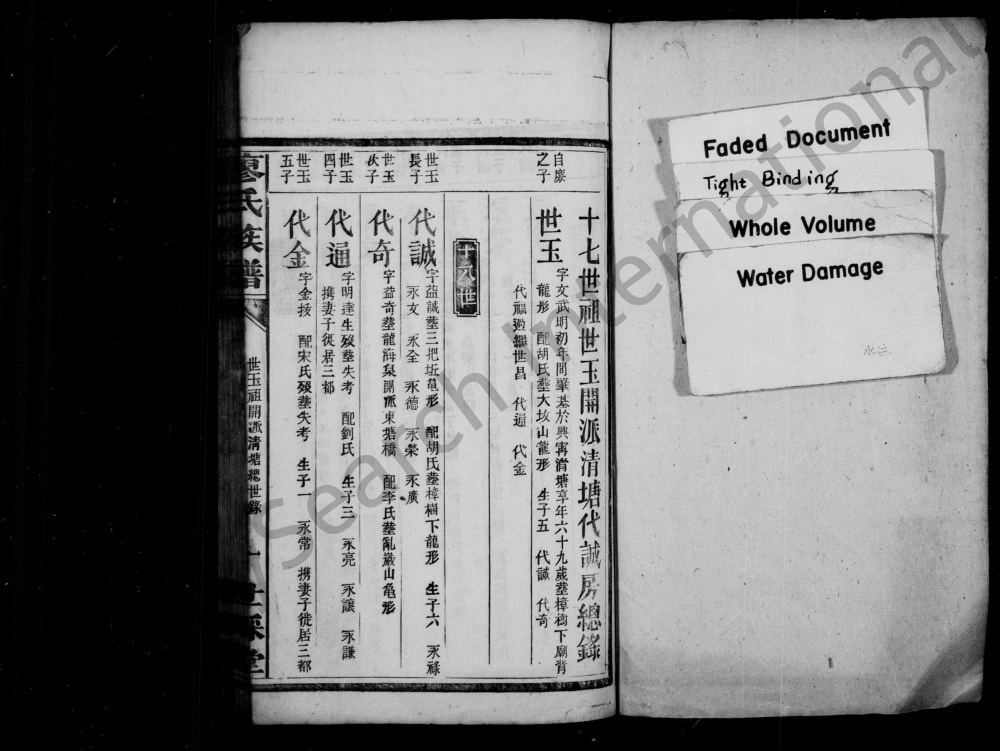 十七世祖世玉開派清塘代誠房總錄
自慶之子
世玉
字文武明初年間肇基於興甯清塘享年六十九歲塟樟樹下廟背
龍形 配胡氏塟大垓山龍形 生子五 代誠 代奇
代福過繼世昌 代通 代金
十八世
世玉長子
代誠
字益誠塟三把坵龜形 配胡氏塟樟樹下龍形 生子六 永祿
永文 永全 永德 永榮 永廣
世玉次子
代奇
字益奇塟龍海泉開派東塘橋 配李氏塟亂巖山龜形
世玉四子
代通
字明達生歿塟失考 配劉氏 生子三 永亮 永讓 永謙
携妻子徙居三都
世玉五子
代金
字金授 配宋氏歿塟失考 生子一 永常 携妻子徙居三都
廖氏族譜
世玉祖開派清塘總世錄
Faded Document
Tight Binding
Whole Volume
Water Damage
Search International